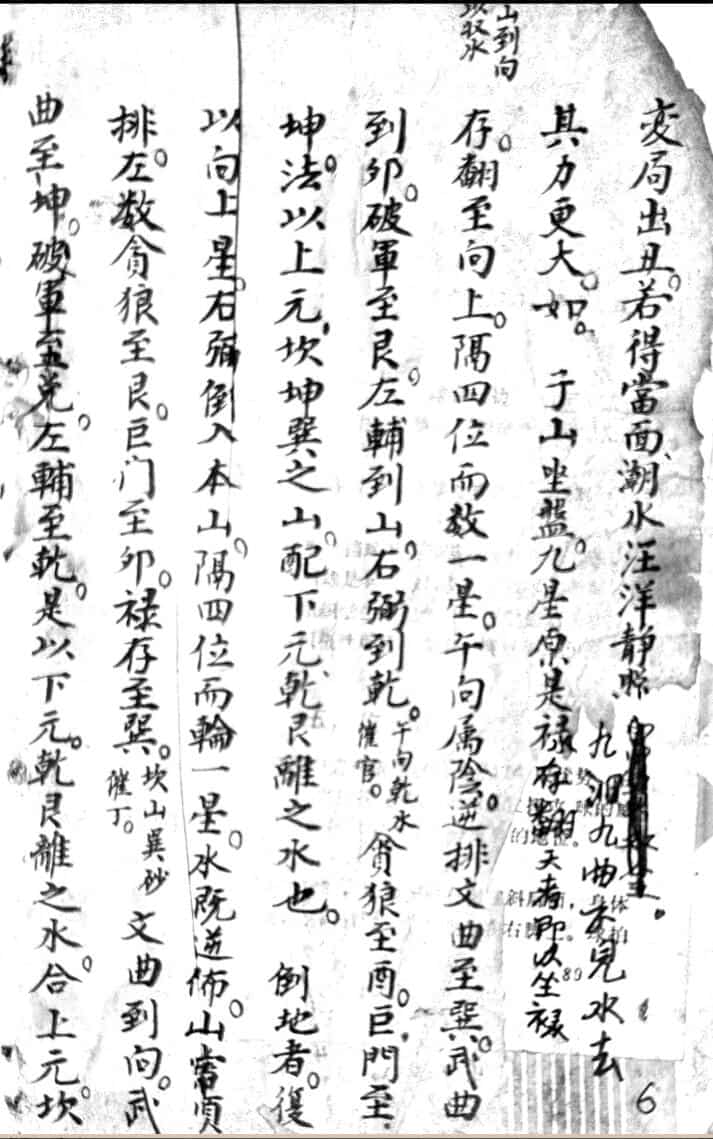 山到向
以收水
變局出丑。若得當面潮水汪洋靜照
九洄九曲不見水去
其力更大。如。于山坐盤。九星原是祿存翻天者即以坐祿
存。翻至向上。隔四位而数一星。午向属陰。逆排文曲至巽。武曲
到卯。破軍至艮。左輔到山。右弼到乾。午向乾水催官。貪狼至酉。巨門至
坤。法以上元坎坤巽之山。配下元乾艮離之水也。倒地者。復
以向上星。右弼倒入本山。隔四位而輪一星。水既逆佈。山當順
排。左数貪狼至艮。巨门至卯。祿存至巽。坎山巽砂催丁。文曲到向。武
曲至坤。破軍至兌。左輔至乾。是以下元。乾艮離之水。合上元。坎
6